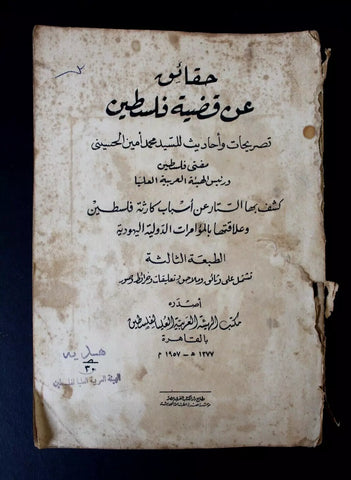 حقائق
عن قضية فلسطين
تصريحات وأحاديث للسيد محمد أمين الحسيني
مفتي فلسطين
ورئيس الهيئة العربية العليا
كشف بها الستار عن أسباب كارثة فلسطين
وعلاقتها بالمؤامرات الدولية اليهودية
الطبعة الثالثة
تشتمل على وثائق وملاحق وتعليقات وخرائط وصور
أصدره
مكتب الهيئة العربية العليا لفلسطين
بالقاهرة
١٣٧٧ هـ - ١٩٥٧ م
هدية
٣٠
الهيئة العربية العليا لفلسطين